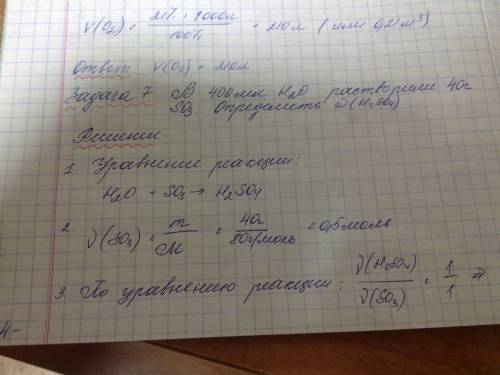 V(O₂) = 21% · 1000л / 100% = 210 л ( или 0,21 м³)
Ответ: V(O₂) = 210л
Задача 7 В 400мл H₂O растворили 40г
SO₃. Определить ω(H₂SO₄)
Решение:
1. Уравнение реакции:
H₂O + SO₃ → H₂SO₄
2. ν(SO₃) = m / M = 40г / 80г/моль = 0,5моль
3. По уравнению реакции: ν(H₂SO₄) / ν(SO₃) = 1 / 1 ⇒
4-